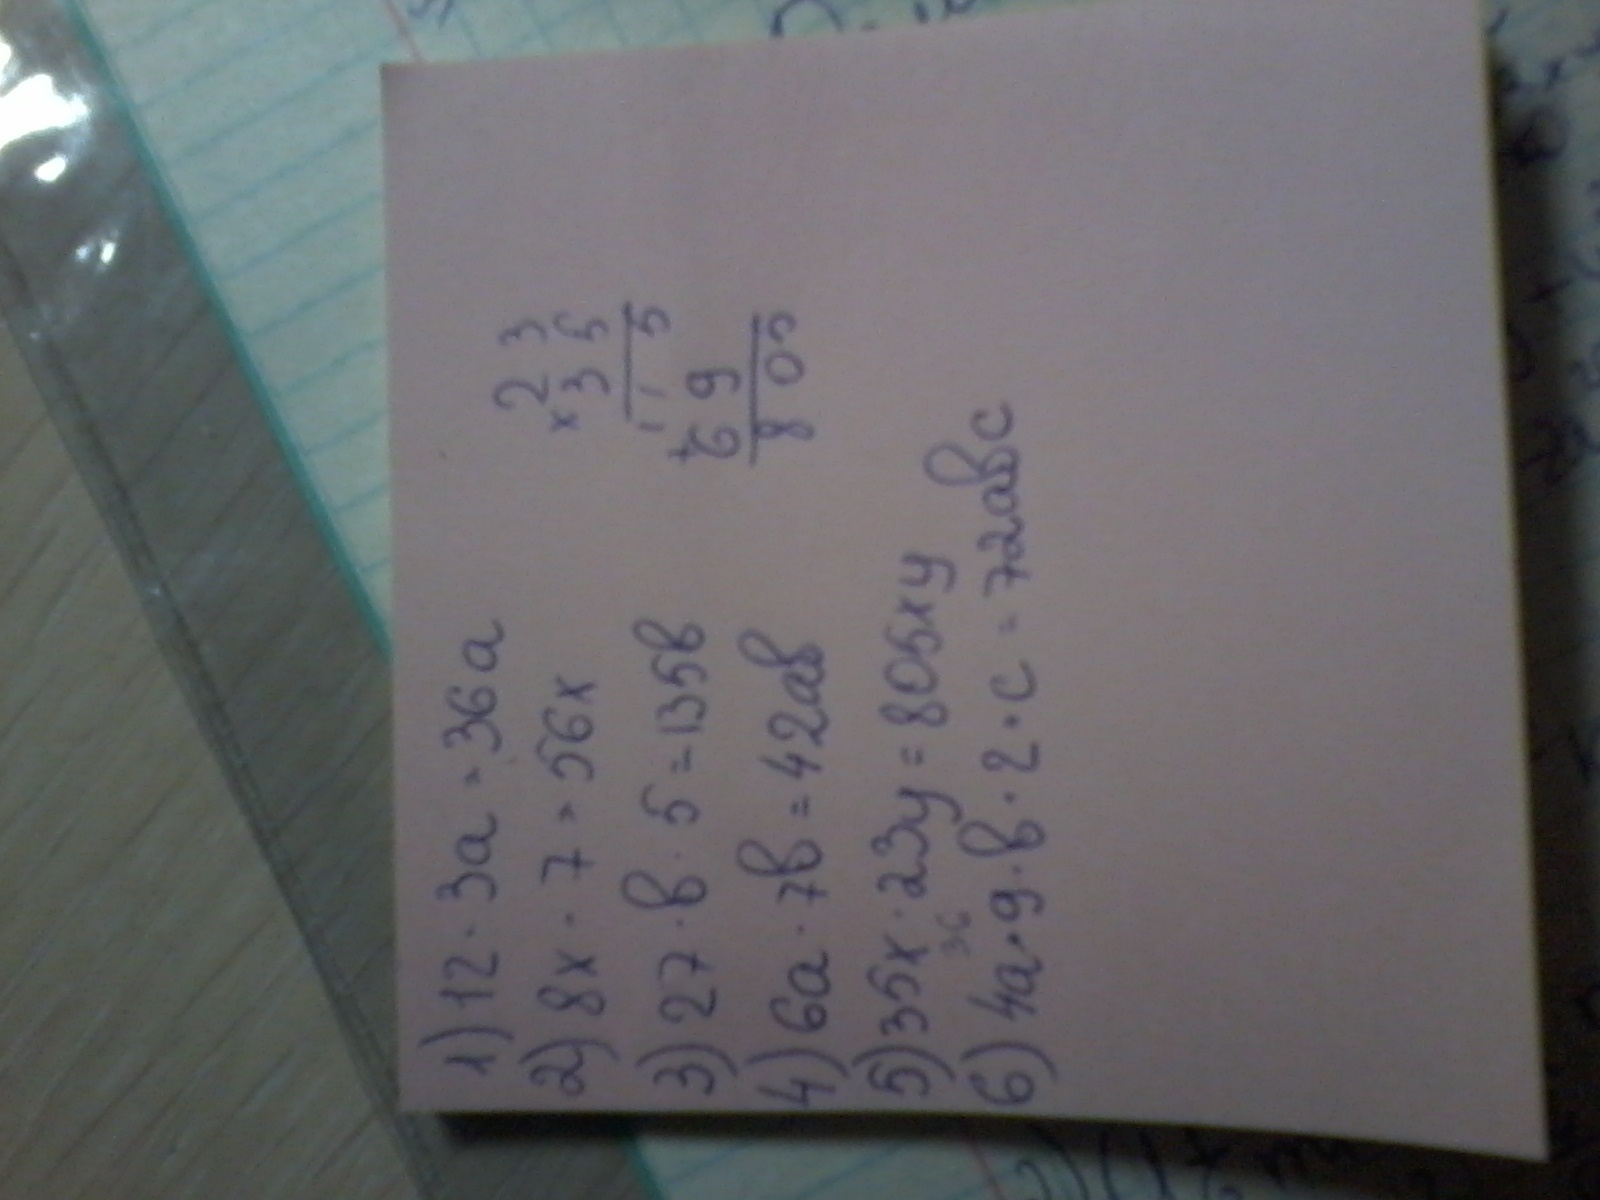 1) 12 · 3a = 36a
2) 8x · 7 = 56x
3) 27 · в · 5 = 135в
4) 6a · 7в = 42ав
5) 35x · 23y = 805xy
36
6) 4a · 9 · в · 2 · c = 72авc
23
× 35
115
+ 69
805